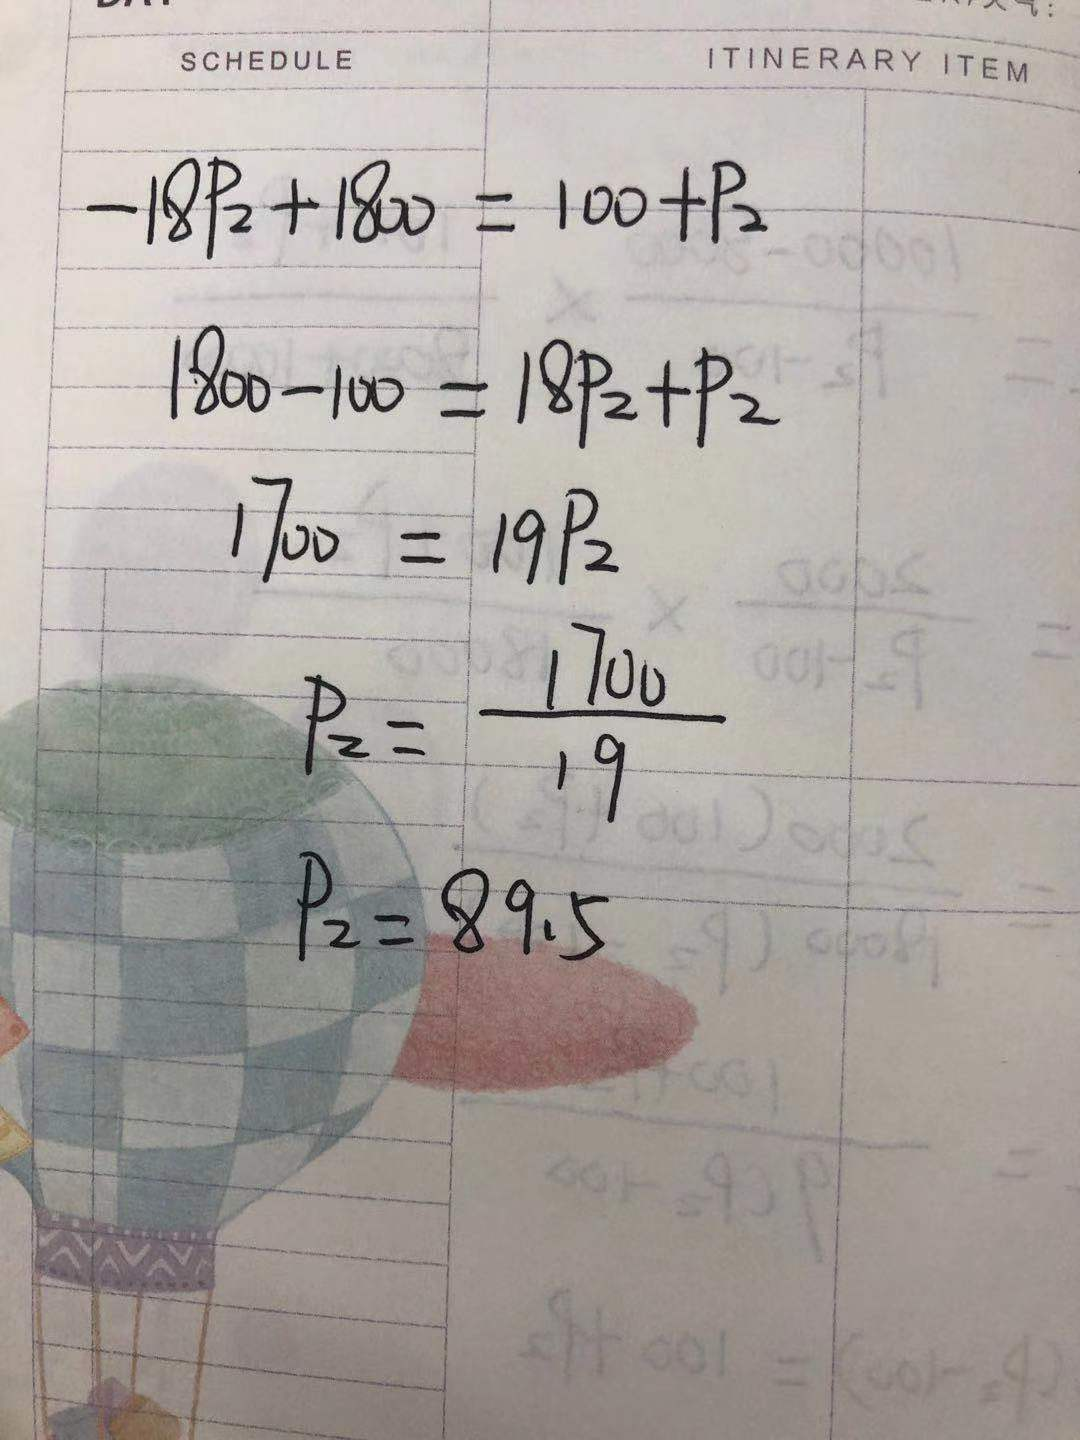 SCHEDULE ITINERARY ITEM
-18P₂+1800 = 100+P₂
1800-100 = 18P₂+P₂
1700 = 19P₂
P₂ = 1700/19
P₂ = 89.5